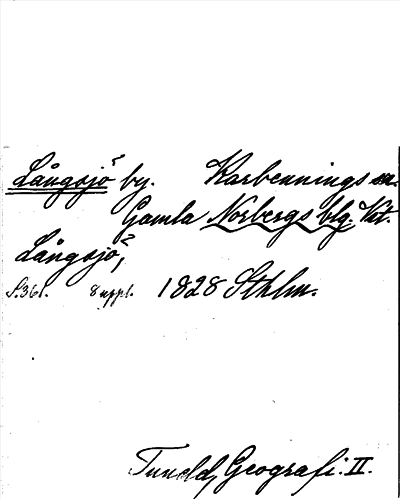 Långsjö by. Karbennings sn.
Gamla Norbergs blg. Vst.
Långsjö,
S.361. 8 uppl. 1828 Sthlm.
Tuneld, Geografi. II.